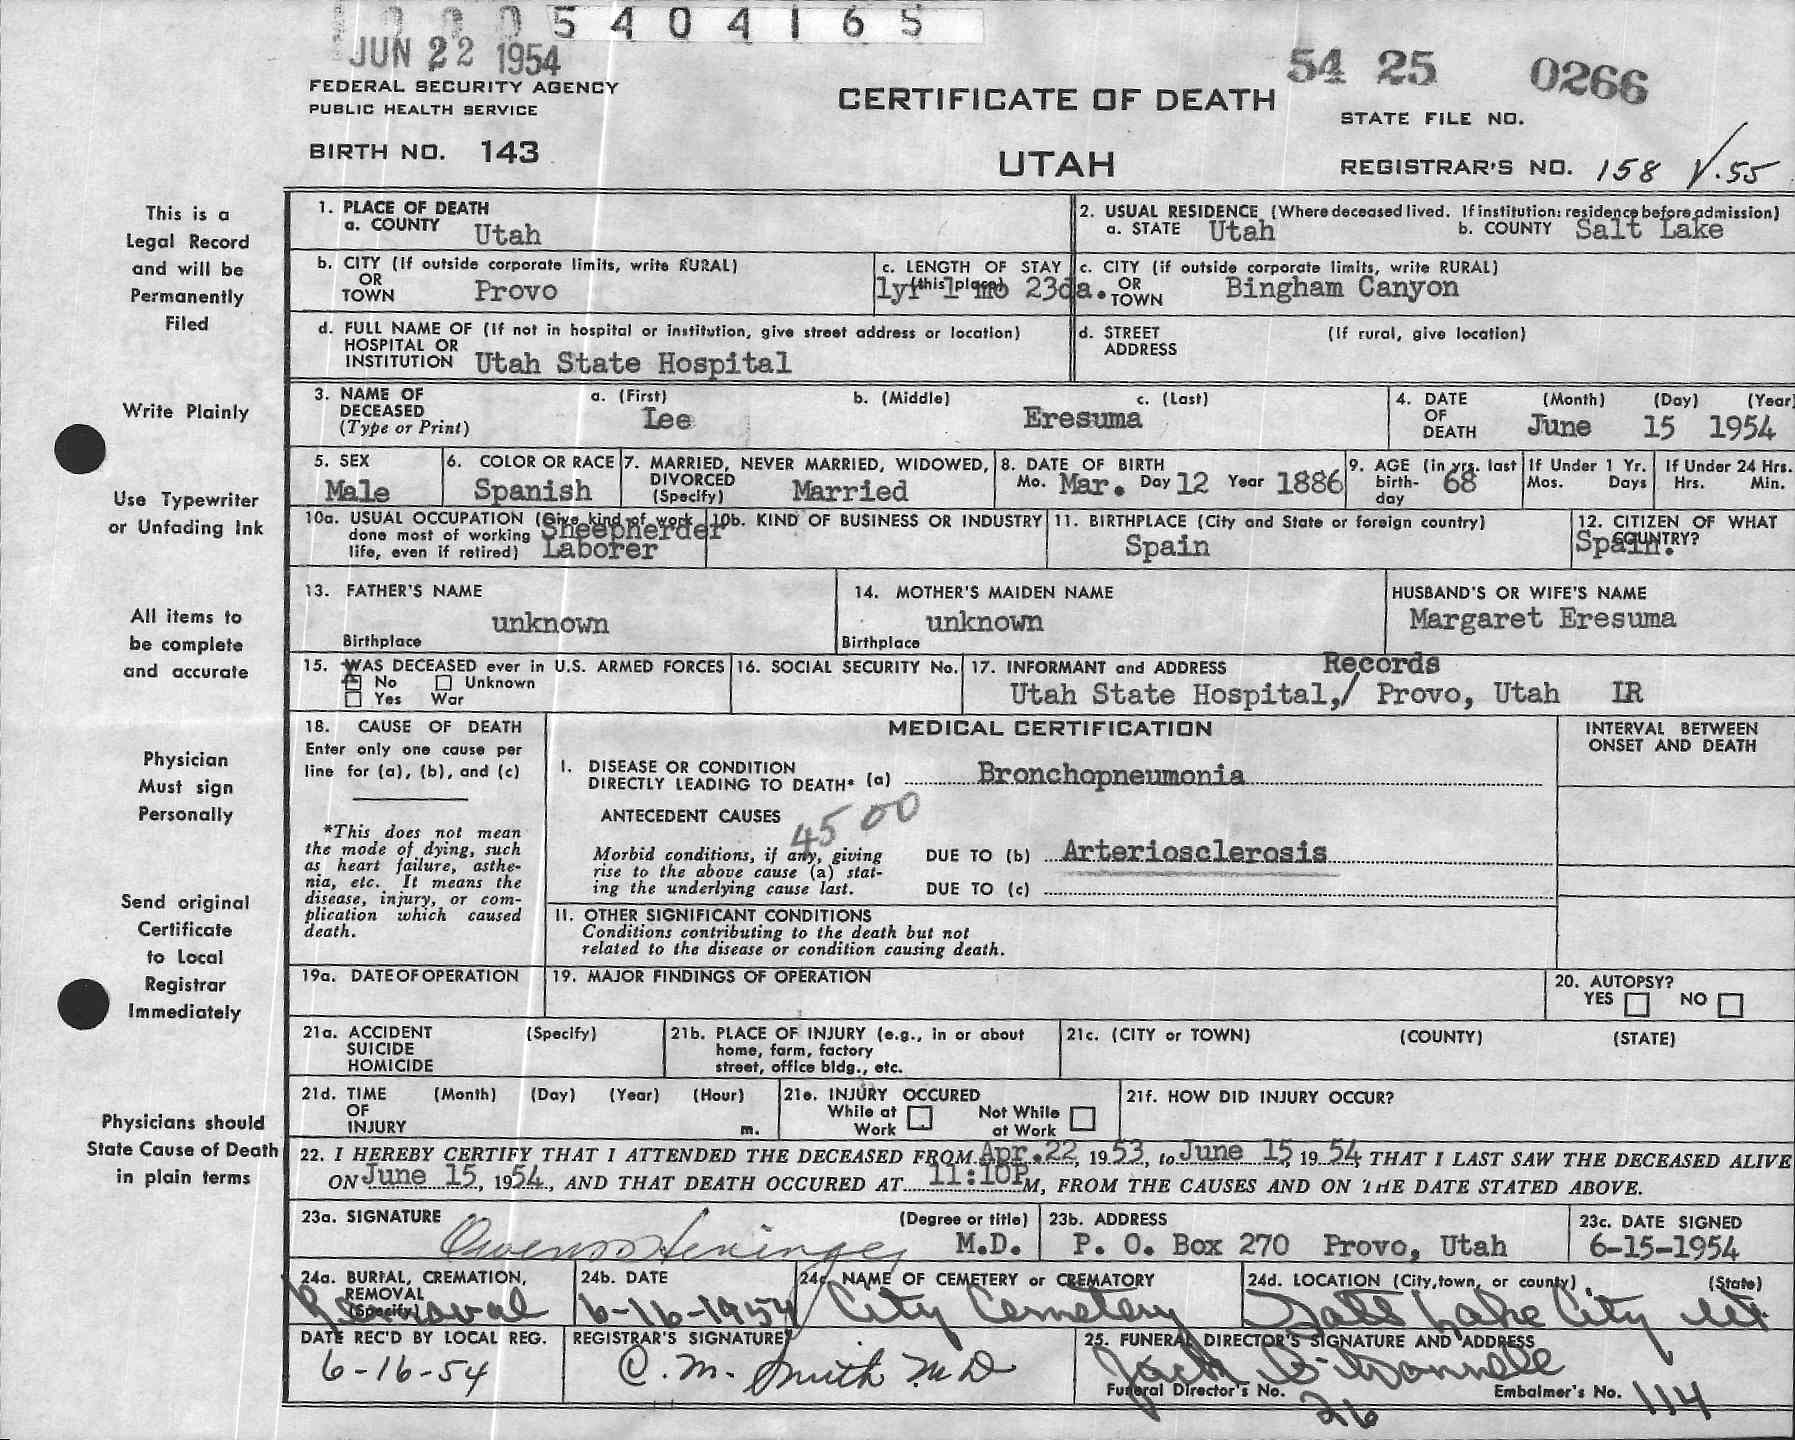 5 4 0 4 1 6 5
JUN 22 1954
54 25 0266
FEDERAL SECURITY AGENCY
PUBLIC HEALTH SERVICE
CERTIFICATE OF DEATH
STATE FILE NO.
BIRTH NO. 143
UTAH
REGISTRAR'S NO. 158 V.55
This is a
Legal Record
and will be
Permanently
Filed
Write Plainly
Use Typewriter
or Unfading Ink
All items to
be complete
and accurate
Physician
Must sign
Personally
Send original
Certificate
to Local
Registrar
Immediately
Physicians should
State Cause of Death
in plain terms
1. PLACE OF DEATH
a. COUNTY Utah
2. USUAL RESIDENCE (Where deceased lived. If institution: residence before admission)
a. STATE Utah b. COUNTY Salt Lake
b. CITY (If outside corporate limits, write RURAL)
OR
TOWN Provo
c. LENGTH OF STAY
(this place)
1yr 1 mo 23da.
c. CITY (if outside corporate limits, write RURAL)
OR
TOWN Bingham Canyon
d. FULL NAME OF (If not in hospital or institution, give street address or location)
HOSPITAL OR
INSTITUTION Utah State Hospital
d. STREET (If rural, give location)
ADDRESS
3. NAME OF a. (First) b. (Middle) c. (Last)
DECEASED Lee Eresuma
(Type or Print)
4. DATE (Month) (Day) (Year)
OF
DEATH June 15 1954
5. SEX
Male
6. COLOR OR RACE
Spanish
7. MARRIED, NEVER MARRIED, WIDOWED,
DIVORCED
(Specify) Married
8. DATE OF BIRTH
Mo. Mar. Day 12 Year 1886
9. AGE (in yrs. last
birth-
day 68
If Under 1 Yr.
Mos. Days
If Under 24 Hrs.
Hrs. Min.
10a. USUAL OCCUPATION (Give kind of work
done most of working
life, even if retired)
Sheepherder
Laborer
10b. KIND OF BUSINESS OR INDUSTRY
11. BIRTHPLACE (City and State or foreign country)
Spain
12. CITIZEN OF WHAT
COUNTRY?
Spain.
13. FATHER'S NAME
unknown
Birthplace
14. MOTHER'S MAIDEN NAME
unknown
Birthplace
HUSBAND'S OR WIFE'S NAME
Margaret Eresuma
15. WAS DECEASED ever in U.S. ARMED FORCES
No Unknown
Yes War
16. SOCIAL SECURITY No.
17. INFORMANT and ADDRESS Records
Utah State Hospital,/ Provo, Utah IR
18. CAUSE OF DEATH
Enter only one cause per
line for (a), (b), and (c)
*This does not mean
the mode of dying, such
as heart failure, asthe-
nia, etc. It means the
disease, injury, or com-
plication which caused
death.
MEDICAL CERTIFICATION
INTERVAL BETWEEN
ONSET AND DEATH
I. DISEASE OR CONDITION
DIRECTLY LEADING TO DEATH* (a) Bronchopneumonia
ANTECEDENT CAUSES
4500
Morbid conditions, if any, giving
rise to the above cause (a) stat-
ing the underlying cause last.
DUE TO (b) Arteriosclerosis
DUE TO (c)
II. OTHER SIGNIFICANT CONDITIONS
Conditions contributing to the death but not
related to the disease or condition causing death.
19a. DATE OF OPERATION
19. MAJOR FINDINGS OF OPERATION
20. AUTOPSY?
YES NO
21a. ACCIDENT (Specify)
SUICIDE
HOMICIDE
21b. PLACE OF INJURY (e.g., in or about
home, farm, factory
street, office bldg., etc.
21c. (CITY or TOWN) (COUNTY) (STATE)
21d. TIME (Month) (Day) (Year) (Hour)
OF
INJURY m.
21e. INJURY OCCURED
While at Not While
Work at Work
21f. HOW DID INJURY OCCUR?
22. I HEREBY CERTIFY THAT I ATTENDED THE DECEASED FROM Apr. 22, 1953, to June 15, 1954, THAT I LAST SAW THE DECEASED ALIVE
ON June 15, 1954, AND THAT DEATH OCCURED AT 11:10P M, FROM THE CAUSES AND ON THE DATE STATED ABOVE.
23a. SIGNATURE (Degree or title)
M.D.
23b. ADDRESS
P. O. Box 270 Provo, Utah
23c. DATE SIGNED
6-15-1954
24a. BURIAL, CREMATION,
REMOVAL
(Specify)
Removal
24b. DATE
6-16-1954
24c. NAME OF CEMETERY or CREMATORY
City Cemetery
24d. LOCATION (City, town, or county) (State)
Salt Lake City Ut
DATE REC'D BY LOCAL REG.
6-16-54
REGISTRAR'S SIGNATURE
C. M. Smith M D
25. FUNERAL DIRECTOR'S SIGNATURE AND ADDRESS
Jack
Funeral Director's No. 26
Embalmer's No. 114